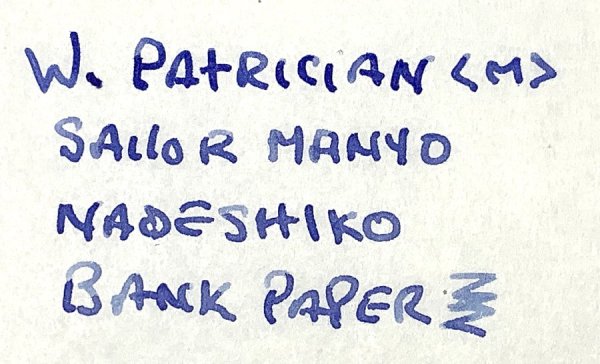 W. PATRICIAN <M>
SAILOR MANYO
NADESHIKO
BANK PAPER